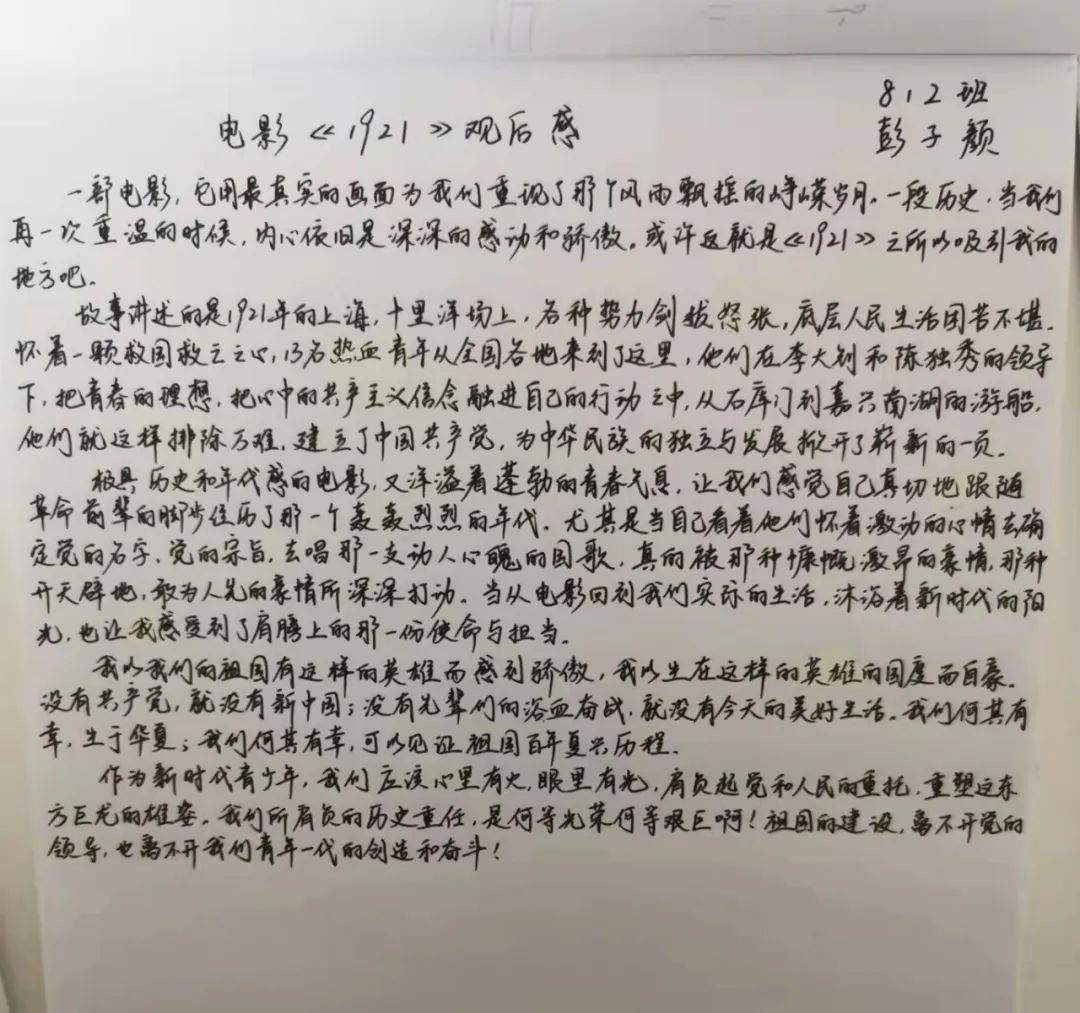 812班
电影《1921》观后感
彭子颜
一部电影，它用最真实的画面为我们重现了那个风雨飘摇的峥嵘岁月。一段历史，当我们
再一次重温的时候，内心依旧是深深的感动和骄傲。或许这就是《1921》之所以吸引我的
地方吧。
故事讲述的是1921年的上海，十里洋场上，各种势力剑拔怒张，底层人民生活困苦不堪。
怀着一颗救国救亡之心，13名热血青年从全国各地来到了这里，他们在李大钊和陈独秀的领导
下，把青春的理想，把心中的共产主义信念融进自己的行动之中，从石库门到嘉兴南湖的游船，
他们就这样排除万难，建立了中国共产党，为中华民族的独立与发展掀开了崭新的一页。
极具历史和年代感的电影，又洋溢着蓬勃的青春气息，让我们感觉自己真切地跟随
革命前辈的脚步经历了那一个轰轰烈烈的年代。尤其是当自己看着他们怀着激动的心情去确
定党的名字，党的宗旨，去唱那一支动人心魄的国歌，真的被那种慷慨激昂的豪情，那种
开天辟地，敢为人先的豪情所深深打动。当从电影回到我们实际的生活，沐浴着新时代的阳
光，也让我感受到了肩膀上的那一份使命与担当。
我以我们的祖国有这样的英雄而感到骄傲，我以生在这样的英雄的国度而自豪。
没有共产党，就没有新中国；没有先辈们的浴血奋战，就没有今天的美好生活。我们何其有
幸，生于华夏；我们何其有幸，可以见证祖国百年复兴历程。
作为新时代青少年，我们应该心里有火，眼里有光，肩负起党和人民的重托，重塑这东
方巨龙的雄姿。我们所肩负的历史重任，是何等光荣何等艰巨啊！祖国的建设，离不开党的
领导，也离不开我们青年一代的创造和奋斗！